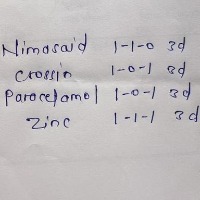 Nimosaid 1-1-0 3d
Crossin 1-0-1 3d
Paracetamol 1-0-1 3d
Zinc 1-1-1 3d